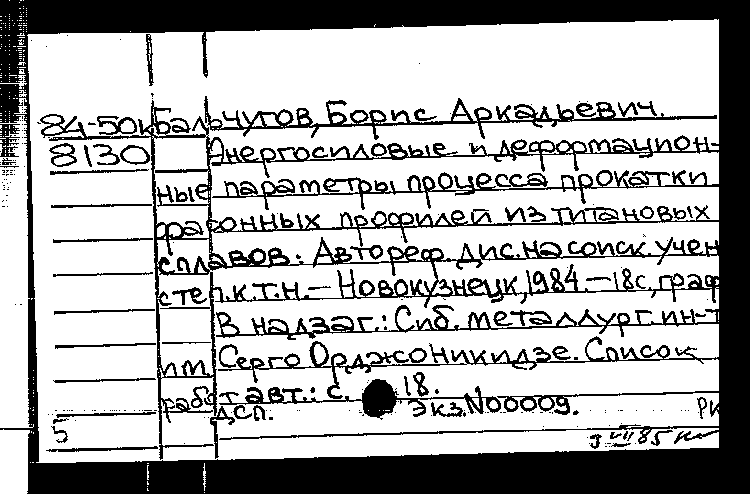 84-50к Бальчугов, Борис Аркадьевич.
8130 Энергосиловые и деформацион-
ные параметры процесса прокатки
фасонных профилей из титановых
сплавов: Автореф. дис. на соиск. учен
степ. к.т.н. — Новокузнецк, 1984. — 18с, граф
В надзаг.: Сиб. металлург. ин-т
им. Серго Орджоникидзе. Список
работ авт.: с. 18.
ДСП. Экз. N00009. РК
5 3 VII 85